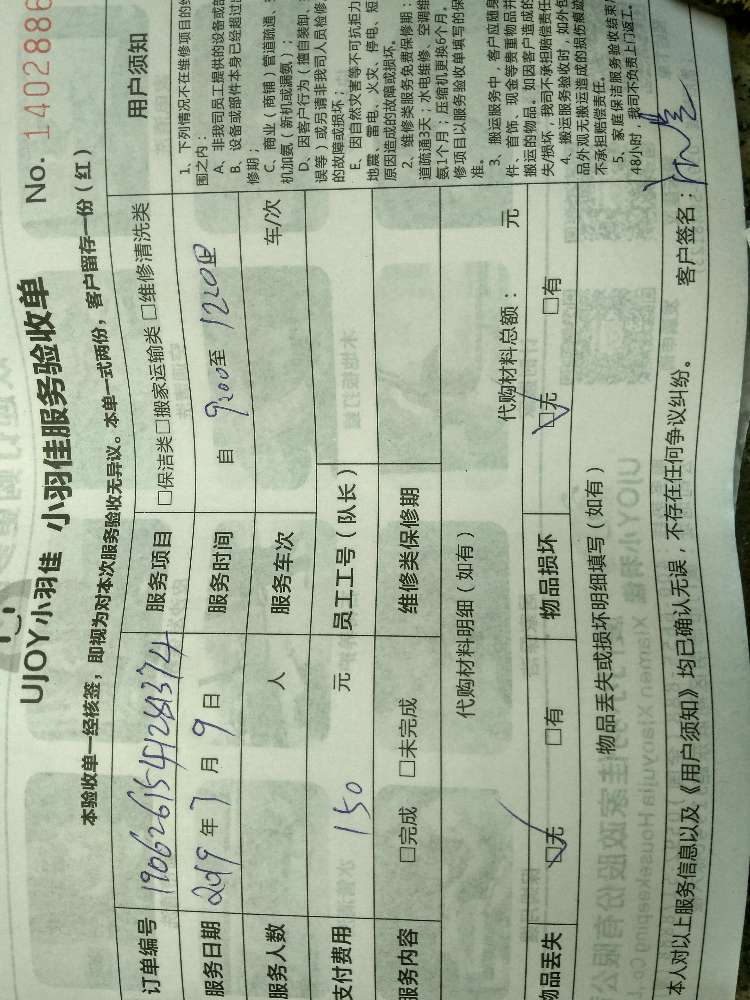 UJOY小羽佳 小羽佳服务验收单 No. 1402886
本验收单一经核签，即视为对本次服务验收无异议。本单一式两份，客户留存一份（红）
订单编号 服务项目 □保洁类□搬家运输类 □维修清洗类
服务日期 2019 年 7 月 9 日 服务时间 自 9:00 至
服务人数 人 服务车次 车/次
支付费用 150 元 员工工号（队长）
服务内容 □完成 □未完成 维修类保修期
代购材料明细（如有） 代购材料总额： 元
物品丢失 □无 □有 物品损坏 □无 □有
物品丢失或损坏明细填写（如有）
用户须知
1、下列情况不在维修项目的
围之内：
A、非我司员工提供的设备或
B、设备或部件本身已经超过
修期；
C、商业（商铺）管道疏通、
机加氨（新机或漏氨）；
D、因客户行为（擅自装卸、
误等）或另请非我司人员检修
的故障或损坏；
E、因自然灾害等不可抗拒力
地震、雷电、火灾、停电、短
原因造成的故障或损坏。
2、维修类服务免费保修期：
道疏通3天；水电维修、空调维
氨1个月；压缩机更换6个月。
修项目以服务验收单填写的保
准。
3、搬运服务中，客户应随身
件、首饰、现金等贵重物品并
搬运的物品。如因客户造成的
失/损坏，我司不承担赔偿责任
4、搬运服务验收时，如外包
品外观无搬运造成的损伤痕迹
不承担赔偿责任。
5、家庭保洁服务验收结束
48小时，我司不负责上门返工。
本人对以上服务信息以及《用户须知》均已确认无误，不存在任何争议纠纷。 客户签名：